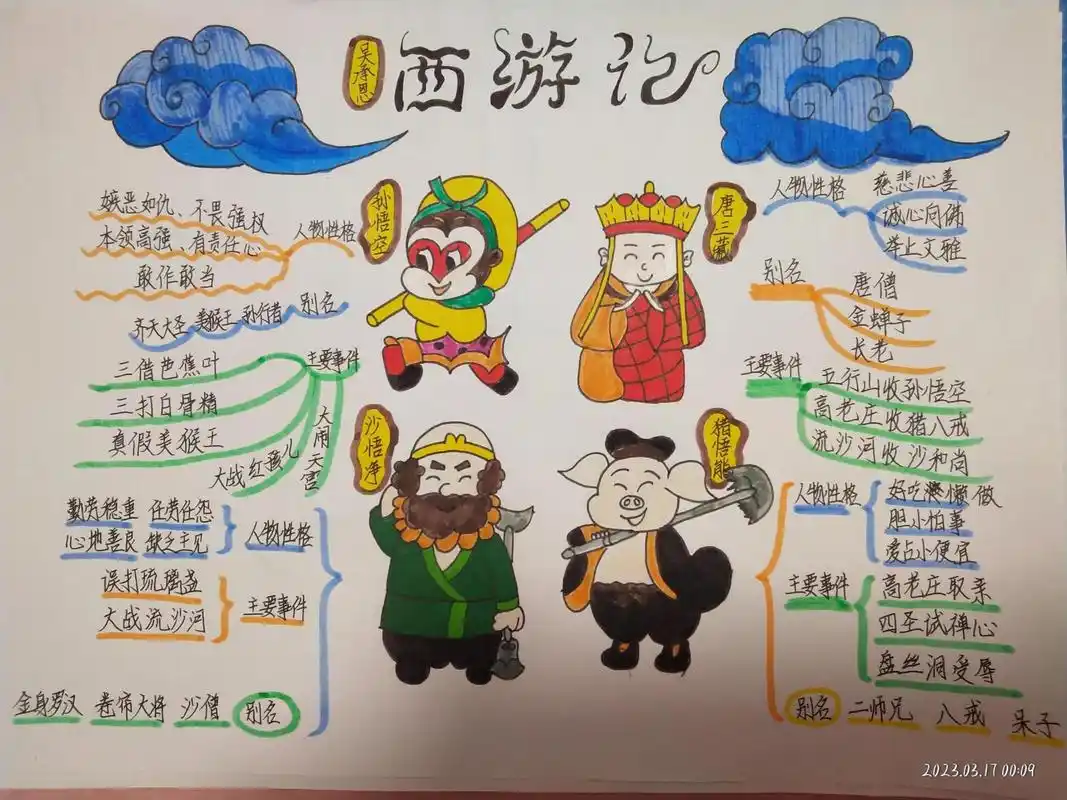 吴承恩
西游记
孙悟空
人物性格
嫉恶如仇、不畏强权
本领高强、有责任心
敢作敢当
别名
齐天大圣 美猴王 孙行者
主要事件
三借芭蕉叶
三打白骨精
真假美猴王
大战红孩儿
大闹天宫
唐三藏
人物性格
慈悲心善
诚心向佛
举止文雅
别名
唐僧
金蝉子
长老
主要事件
五行山收孙悟空
高老庄收猪八戒
流沙河收沙和尚
沙悟净
人物性格
勤劳稳重 任劳任怨
心地善良 缺乏主见
主要事件
误打琉璃盏
大战流沙河
别名
金身罗汉 卷帘大将 沙僧
猪悟能
人物性格
好吃懒做
胆小怕事
爱占小便宜
主要事件
高老庄取亲
四圣试禅心
盘丝洞受辱
别名 二师兄 八戒 呆子
2023.03.17 00:09